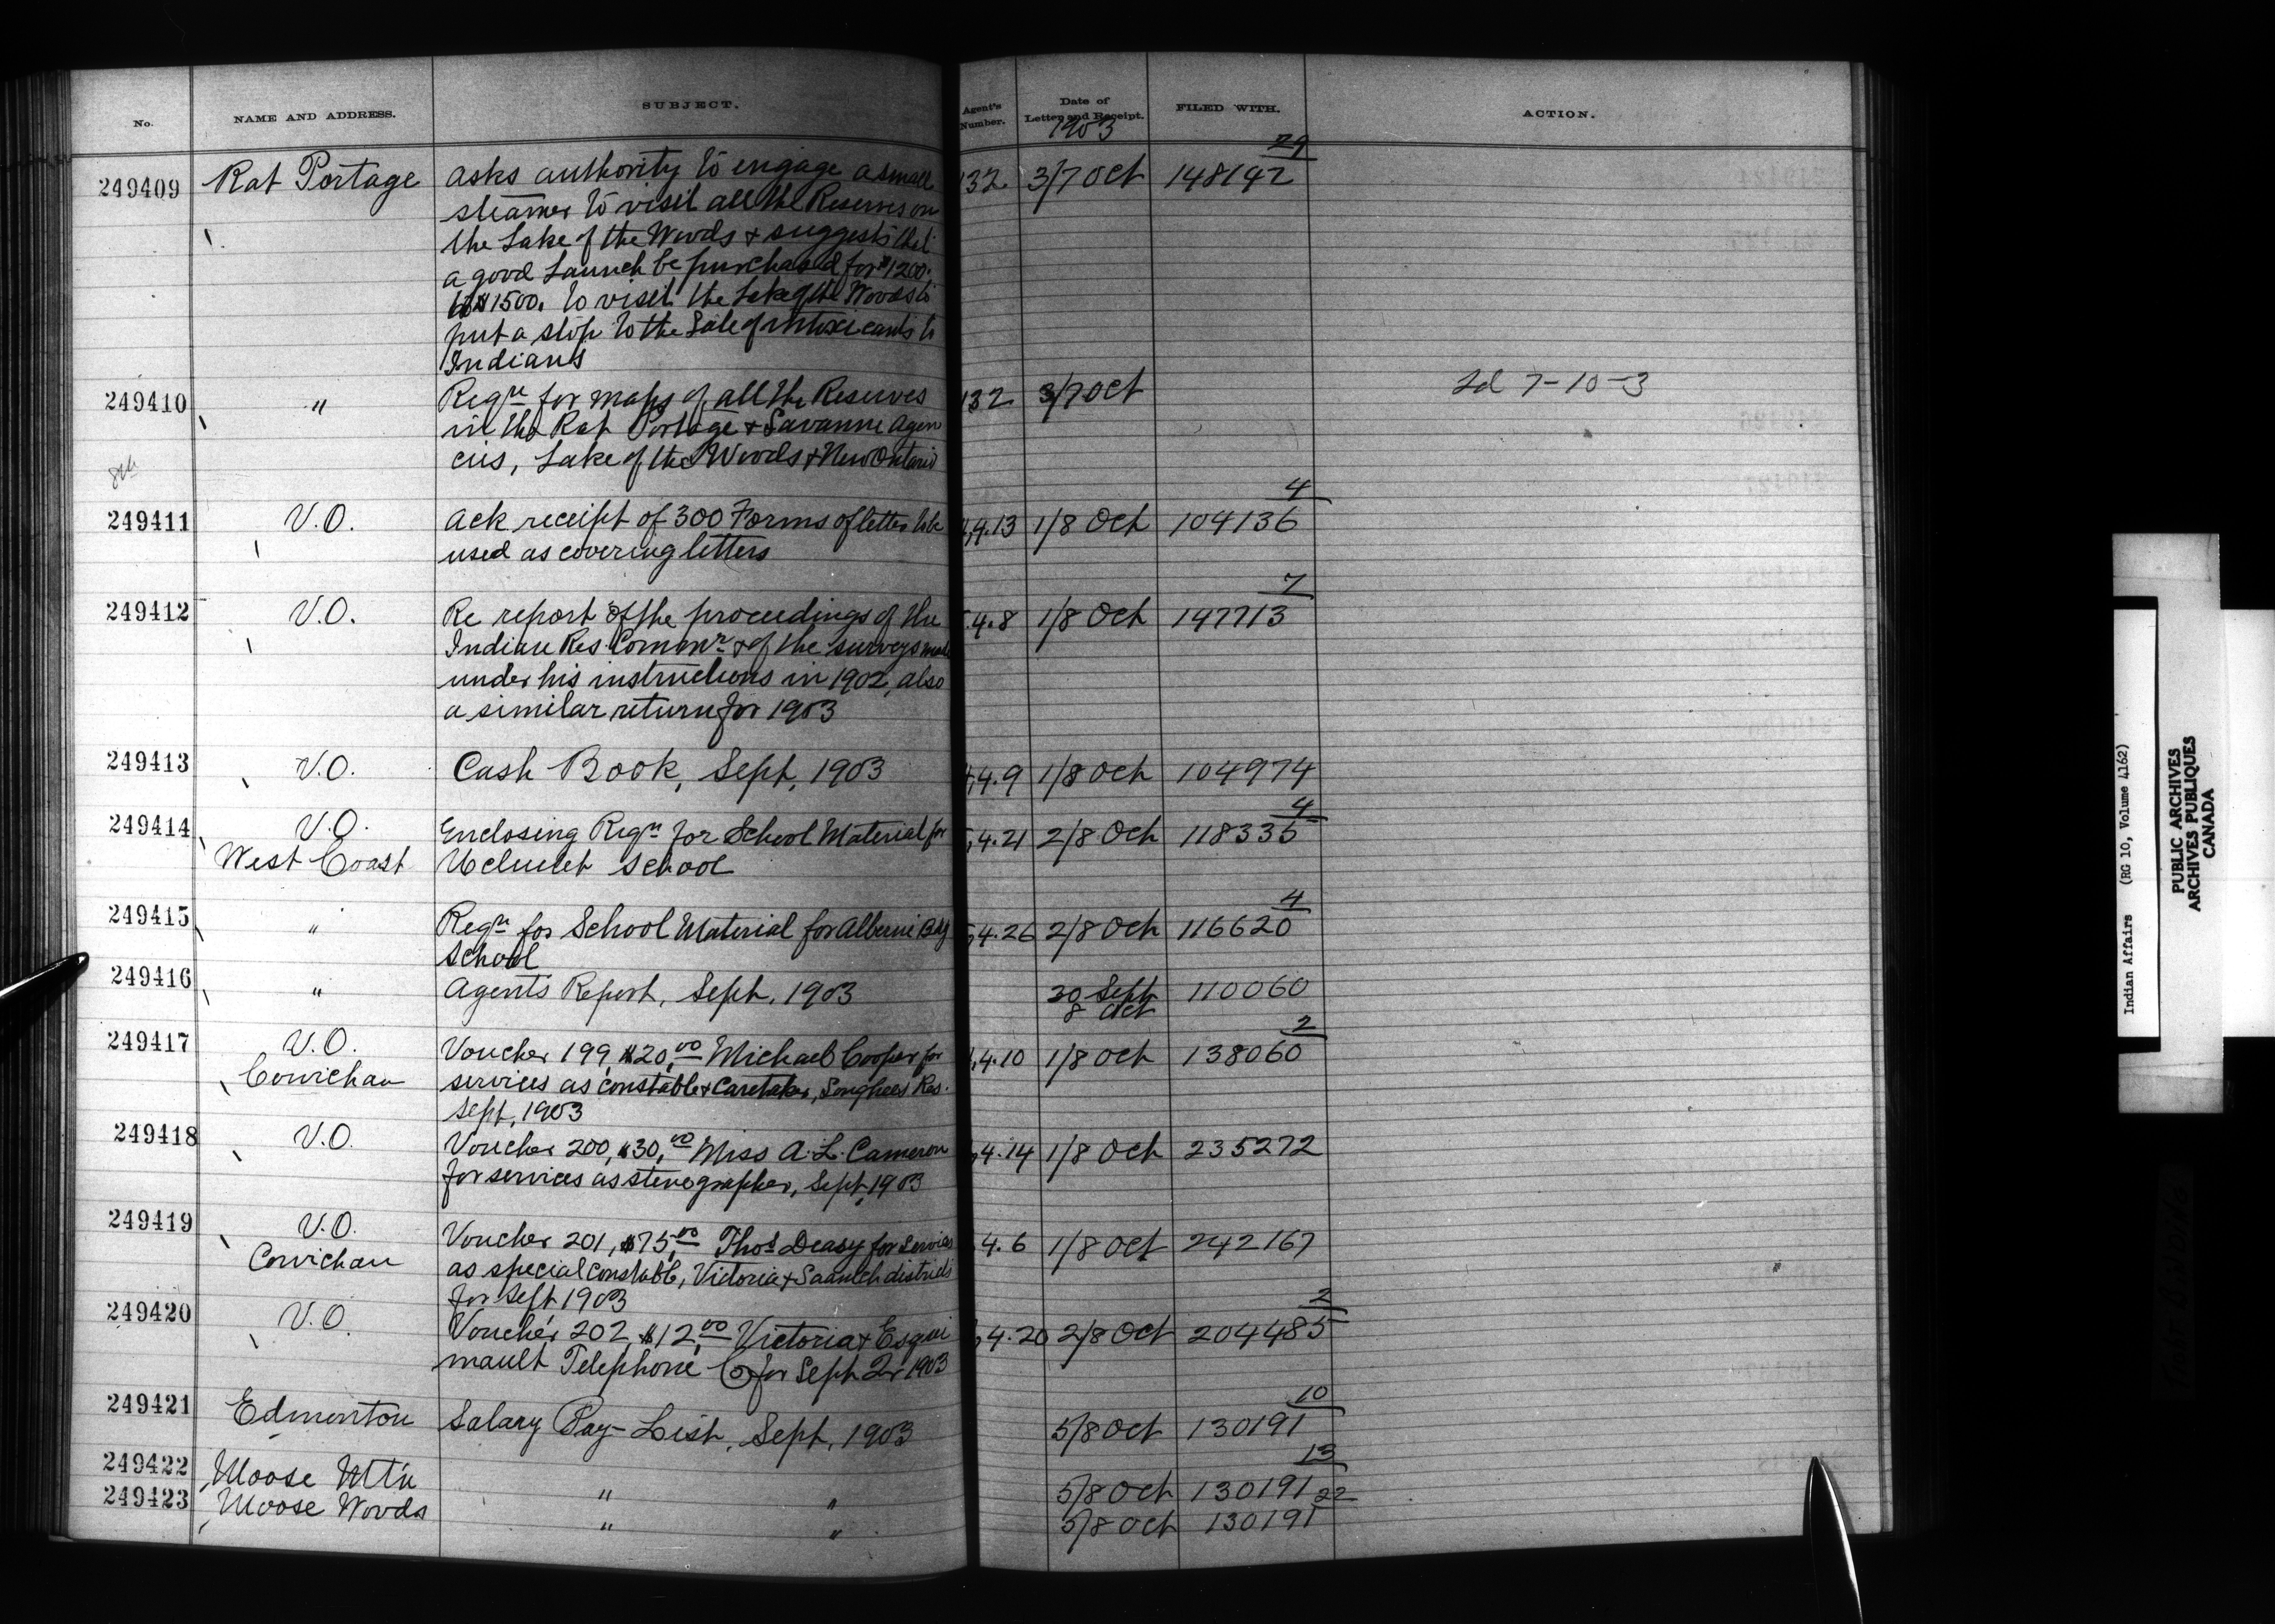 No. NAME AND ADDRESS. SUBJECT. Agent's Number. Date of Letter and Receipt. FILED WITH. ACTION.
1903
29
249409 Rat Portage Asks authority to engage a small 132 3/7 Oct 148142
steamer to visit all the Reserves on
the Lake of the Woods & suggests that
a good Launch be purchased for $1200.
to $1500. to visit the Lake of the Woods to
put a stop to the Sale of intoxicants to
Indians
249410 " Reqn for maps of all the Reserves 132 3/7 Oct 2d 7-10-3
in the Rat Portage & Savanne Agen
cies, Lake of the Woods & New Ontario
8th
4
249411 V.O. Ack receipt of 300 Forms of letter to be 4.13 1/8 Oct 104136
used as covering letters
7
249412 V.O. Re report of the proceedings of the 4.8 1/8 Oct 147713
Indian Res. Commr & of the surveys made
under his instructions in 1902, also
a similar return for 1903
249413 V.O. Cash Book, Sept, 1903 4.9 1/8 Oct 104974
4
249414 V.O. Enclosing Reqn for School Material for 4.21 2/8 Oct 118335
West Coast Ucluelet School
4
249415 " Reqn for School Material for Alberni Bdg 4.26 2/8 Oct 116620
School
249416 " Agents Report, Sept, 1903 30 Sept 110060
8 Oct
2
249417 V.O. Voucher 199, $20,00 Michael Cooper for 4.10 1/8 Oct 138060
Cowichan services as constable & Caretaker, Songhees Res.
Sept, 1903
249418 V.O. Voucher 200, $30,00 Miss A. L. Cameron 4.14 1/8 Oct 235272
for services as stenographer, Sept, 1903
249419 V.O. Voucher 201, $75,00 Thos Deasy for Services 4.6 1/8 Oct 242167
Cowichan as special Constable, Victoria & Saanich districts
for Sept 1903
2
249420 V.O. Voucher 202, $12,00 Victoria & Esqui 4.20 2/8 Oct 204485
mault Telephone Co for Sept Qr 1903
10
249421 Edmonton Salary Pay-List, Sept, 1903 5/8 Oct 130191
13
249422 Moose Mt'n " " 5/8 Oct 130191
22
249423 Moose Woods " " 5/8 Oct 130191
Indian Affairs (RG 10, Volume 4162)
PUBLIC ARCHIVES
ARCHIVES PUBLIQUES
CANADA